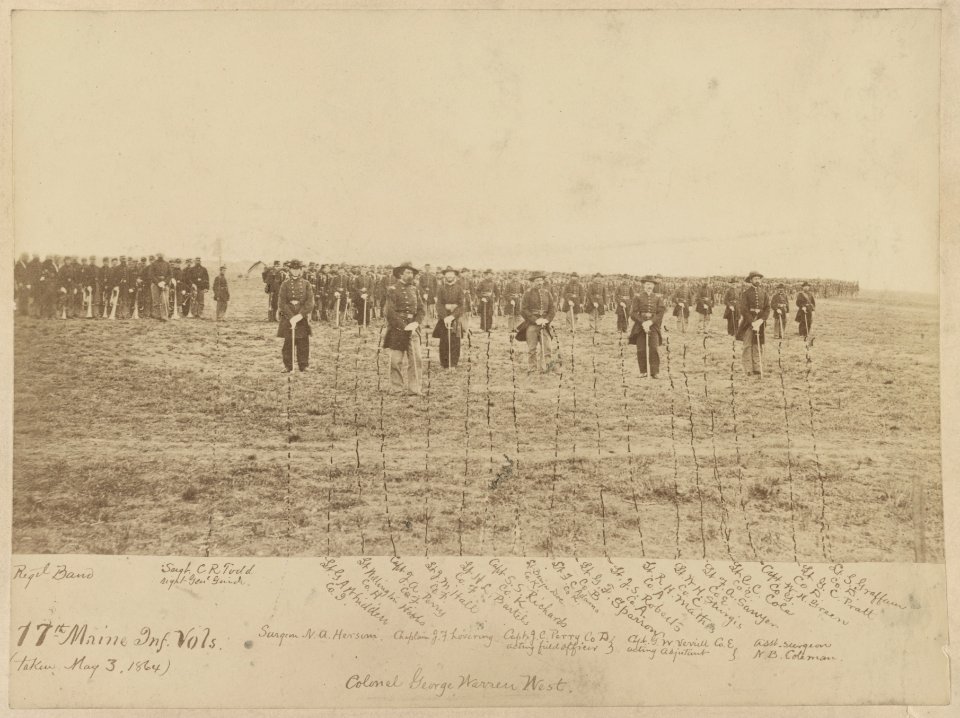 Regl Band
Sergt. C. R. Todd
right Genl Guide.
Lt. Co. G
Lt. Wellington Hobbs
Co. H
Capt. J. A. Perry
Co. H
Lt. J. M. Hall
Co. F
Lt. N. L. Perkins
Co. F
Capt. S. Richards
Co. K
Co. K
Lt. F. C. Adams
Co.
Lt. G. B. Sparrow
Co. B
Lt. J. S. Roberts
Co. A
Lt. R. H. Mathes
Co. A
Lt. W. H. Sturgis
Co.
Lt. F. A. Sawyer
Co. E
Lt. C. C. Cole
Co.
Capt. W. H. Green
Co.
Lt. G. C. Pratt
Co. D
Lt. S. Graffum
17th Maine Inf. Vols.
(taken May 3, 1864)
Surgeon N. A. Hersom.
Chaplain J. F. Lovering
Capt. J. C. Perry Co D,
acting field officer }
Capt. G. W. Verrill Co. E,
acting Adjutant }
Asst. surgeon
N. B. Coleman.
Colonel George Warren West.